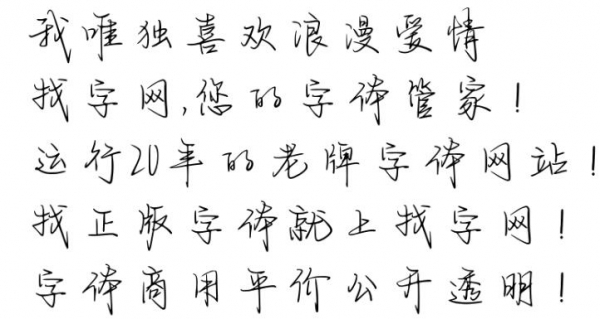 我唯独喜欢浪漫爱情
找字网,您的字体管家!
运行20年的老牌字体网站!
找正版字体就上找字网!
字体商用平价公开透明!